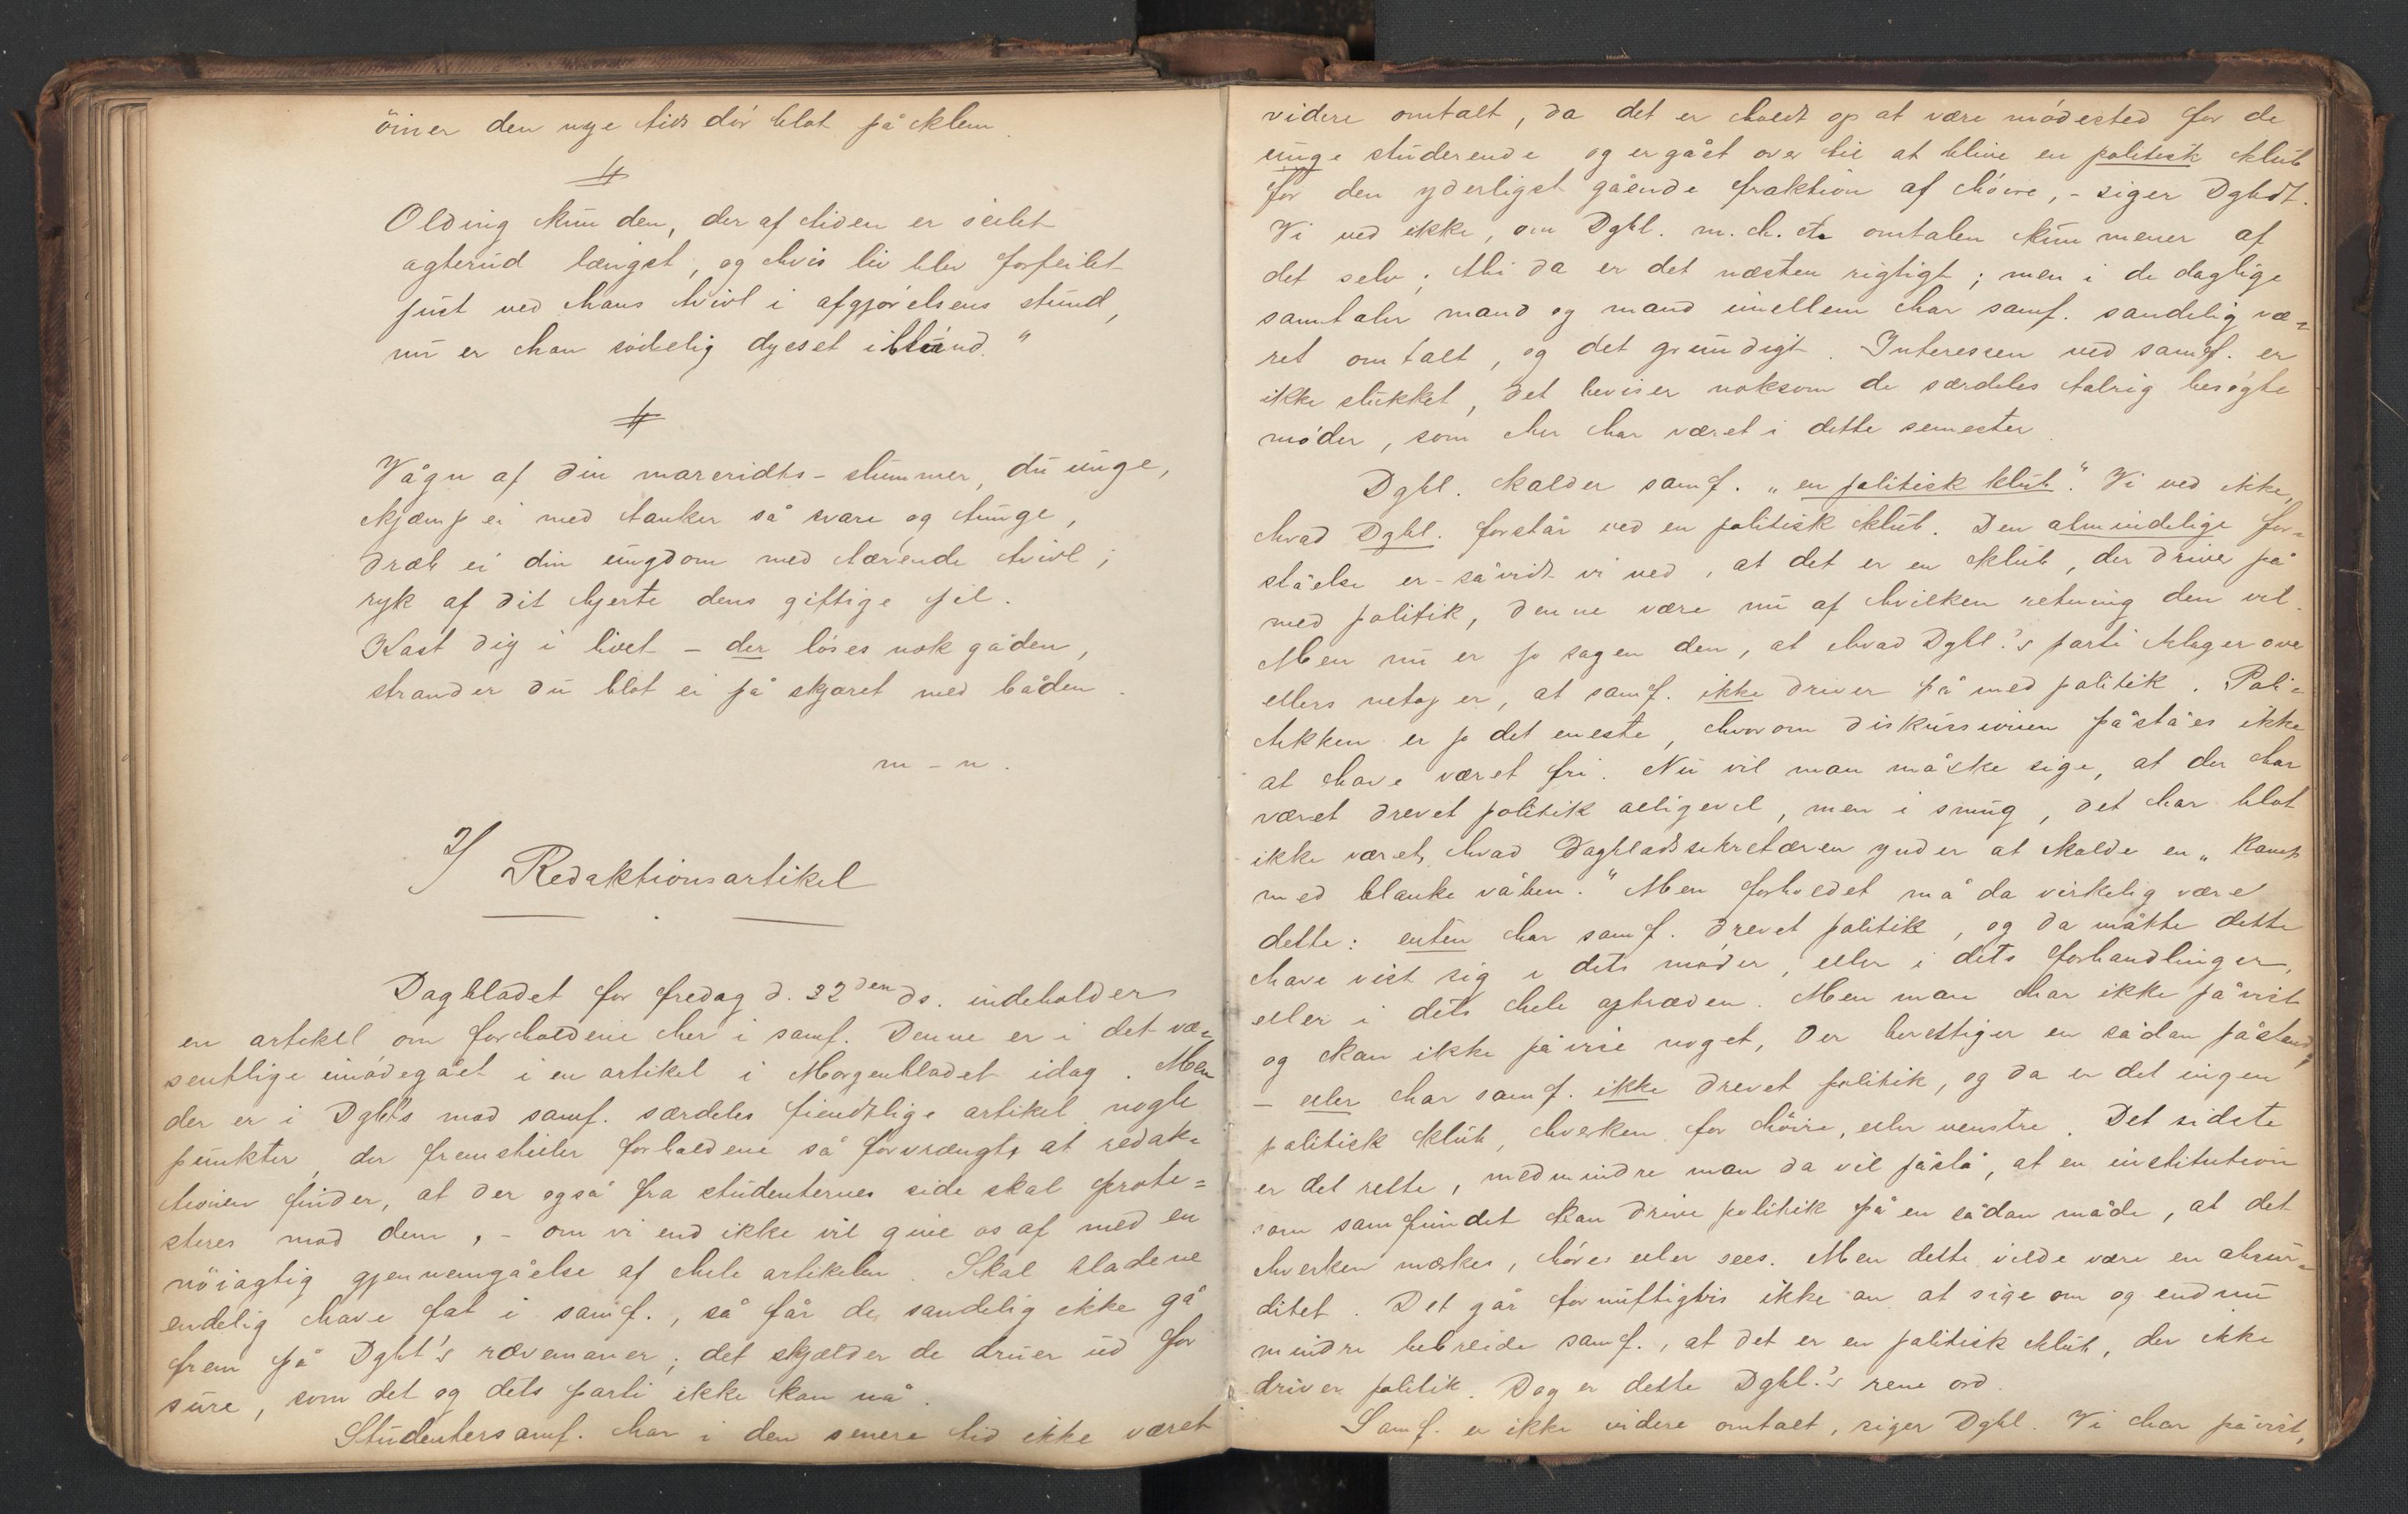 öiner den nye tids dør blot på klem.
#
Olding kun den, der af tiden er seilet
agterud længst, og hvis liv blev forfeilet
just ved hans tvivl i afgjørelsens stund,
nu er han sødelig dysset i blund."
#
Vågn af din mareridts-slummer, du unge,
kjæmp ei med tanker så svare og tunge,
dræb ei din ungdom med tærende tvivl;
ryk af dit hjerte dens giftige pil.
Kast dig i livet – der løses nok gåden,
strander du blot ei på skjæret med båden.
m – n.
2/ Redaktionsartikel
Dagbladet for fredag d. 22den ds. indeholder
en artikel om forholdene her i samf. Denne er i det væ=
sentlige imødegået i en artikel i Morgenbladet idag. Men
der er i Dgbl's mod samf. særdeles fiendtlige artikel nogle
punkter, der fremstiller forholdene så forvrængt, at redak=
tionen finder, at der også fra studenternes side skal prote=
steres mod dem, – om vi end ikke vil give os af med en
nöiagtig gjennemgåelse af hele artikelen. Skal bladene
endelig have fat i samf., så får de sandelig ikke gå
frem på Dgbl's rævemaner; det skjælder de druer ud for
sure, som det og dets parti ikke kan nå.
Studentersamf. har i den senere tid ikke været
videre omtalt, da det er holdt op at være mødested for de
unge studerende og er gået over til at blive en politisk klub
for den yderligst gående fraktion af høire, – siger Dgbdt.
Vi ved ikke, om Dgbl. m. h. t. omtalen kun mener af
det selv; thi da er det næsten rigtigt; men i de daglige
samtaler mand og mand imellem har samf. sandelig væ=
ret omtalt, og det grundigt. Interessen ved samf. er
ikke slukket, det beviser noksom de særdeles talrig besøgte
møder, som her har været i dette semester.
Dgbl. kalder samf. „en politisk klub". Vi ved ikke,
hvad Dgbl. forstår ved en politisk klub. Den almindelige for=
ståelse er – såvidt vi ved, at det er en klub, der driver på
med politik, denne være nu af hvilken retning den vil.
Men nu er jo sagen den, at hvad Dgbl.'s parti klager over
ellers netop er, at samf. ikke driver på med politik. Poli=
tikken er jo det eneste, hvorom diskussionen påståes ikke
at have været fri. Nu vil man måske sige, at der har
været drevet politik alligevel, men i smug, det har blot
ikke været, hvad Dagbladssekretæren ynder at kalde en „kamp
med blanke våben." Men forholdet må da virkelig være
dette: enten har samf. drevet politik, og da måtte dette
have vist sig i dets møder, eller i dets forhandlinger,
eller i dets hele optræden. Men man har ikke påvist
og kan ikke påvise noget, der berettiger en sådan påstand,
– eller har samf. ikke drevet politik, og da er det ingen
politisk klub, hverken for høire, eller venstre. Det sidste
er det rette, medmindre man da vil påstå, at en institution
som samfundet kan drive politik på en sådan måde, at det
hverken mærkes, høres eller sees. Men dette vilde være en absur=
ditet. Det går fornuftigvis ikke an at sige om og endnu
mindre bebreide samf., at det er en politisk klub, der ikke
driver politik. Dog er dette Dgbl.'s rene ord.
Samf. er ikke videre omtalt, siger Dgbl. Vi har påvist,